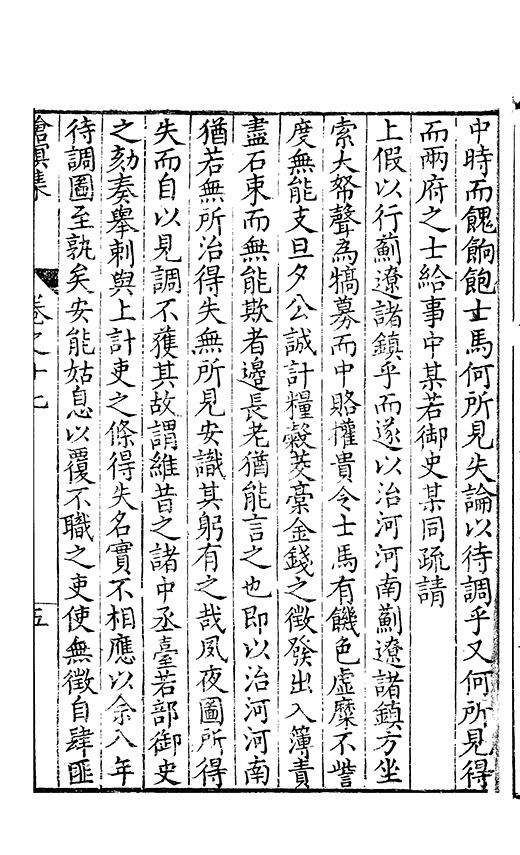 中時而餽餉飽士馬何所見失論以待調乎又何所見得
而兩府之士給事中某若御史某同疏請
上假以行薊遼諸鎮乎而遂以治河河南薊遼諸鎮方坐
索大帑聲為犒募而中賂權貴令士馬有饑色虛糜不訾
度無能支旦夕公誠計糧穀茭藁金錢之徵發出入簿責
盡石東而無能欺者邊長老猶能言之也即以治河河南
猶若無所治得失無所見安識其躬有之哉夙夜圖所得
失而自以見調不獲其故謂維昔之諸中丞臺若部御史
之劾奏舉刺與上計吏之條得失名實不相應以余八年
待調圖至孰矣安能姑息以覆不職之吏使無徵自肆匪
滄溟集
卷之十七
五